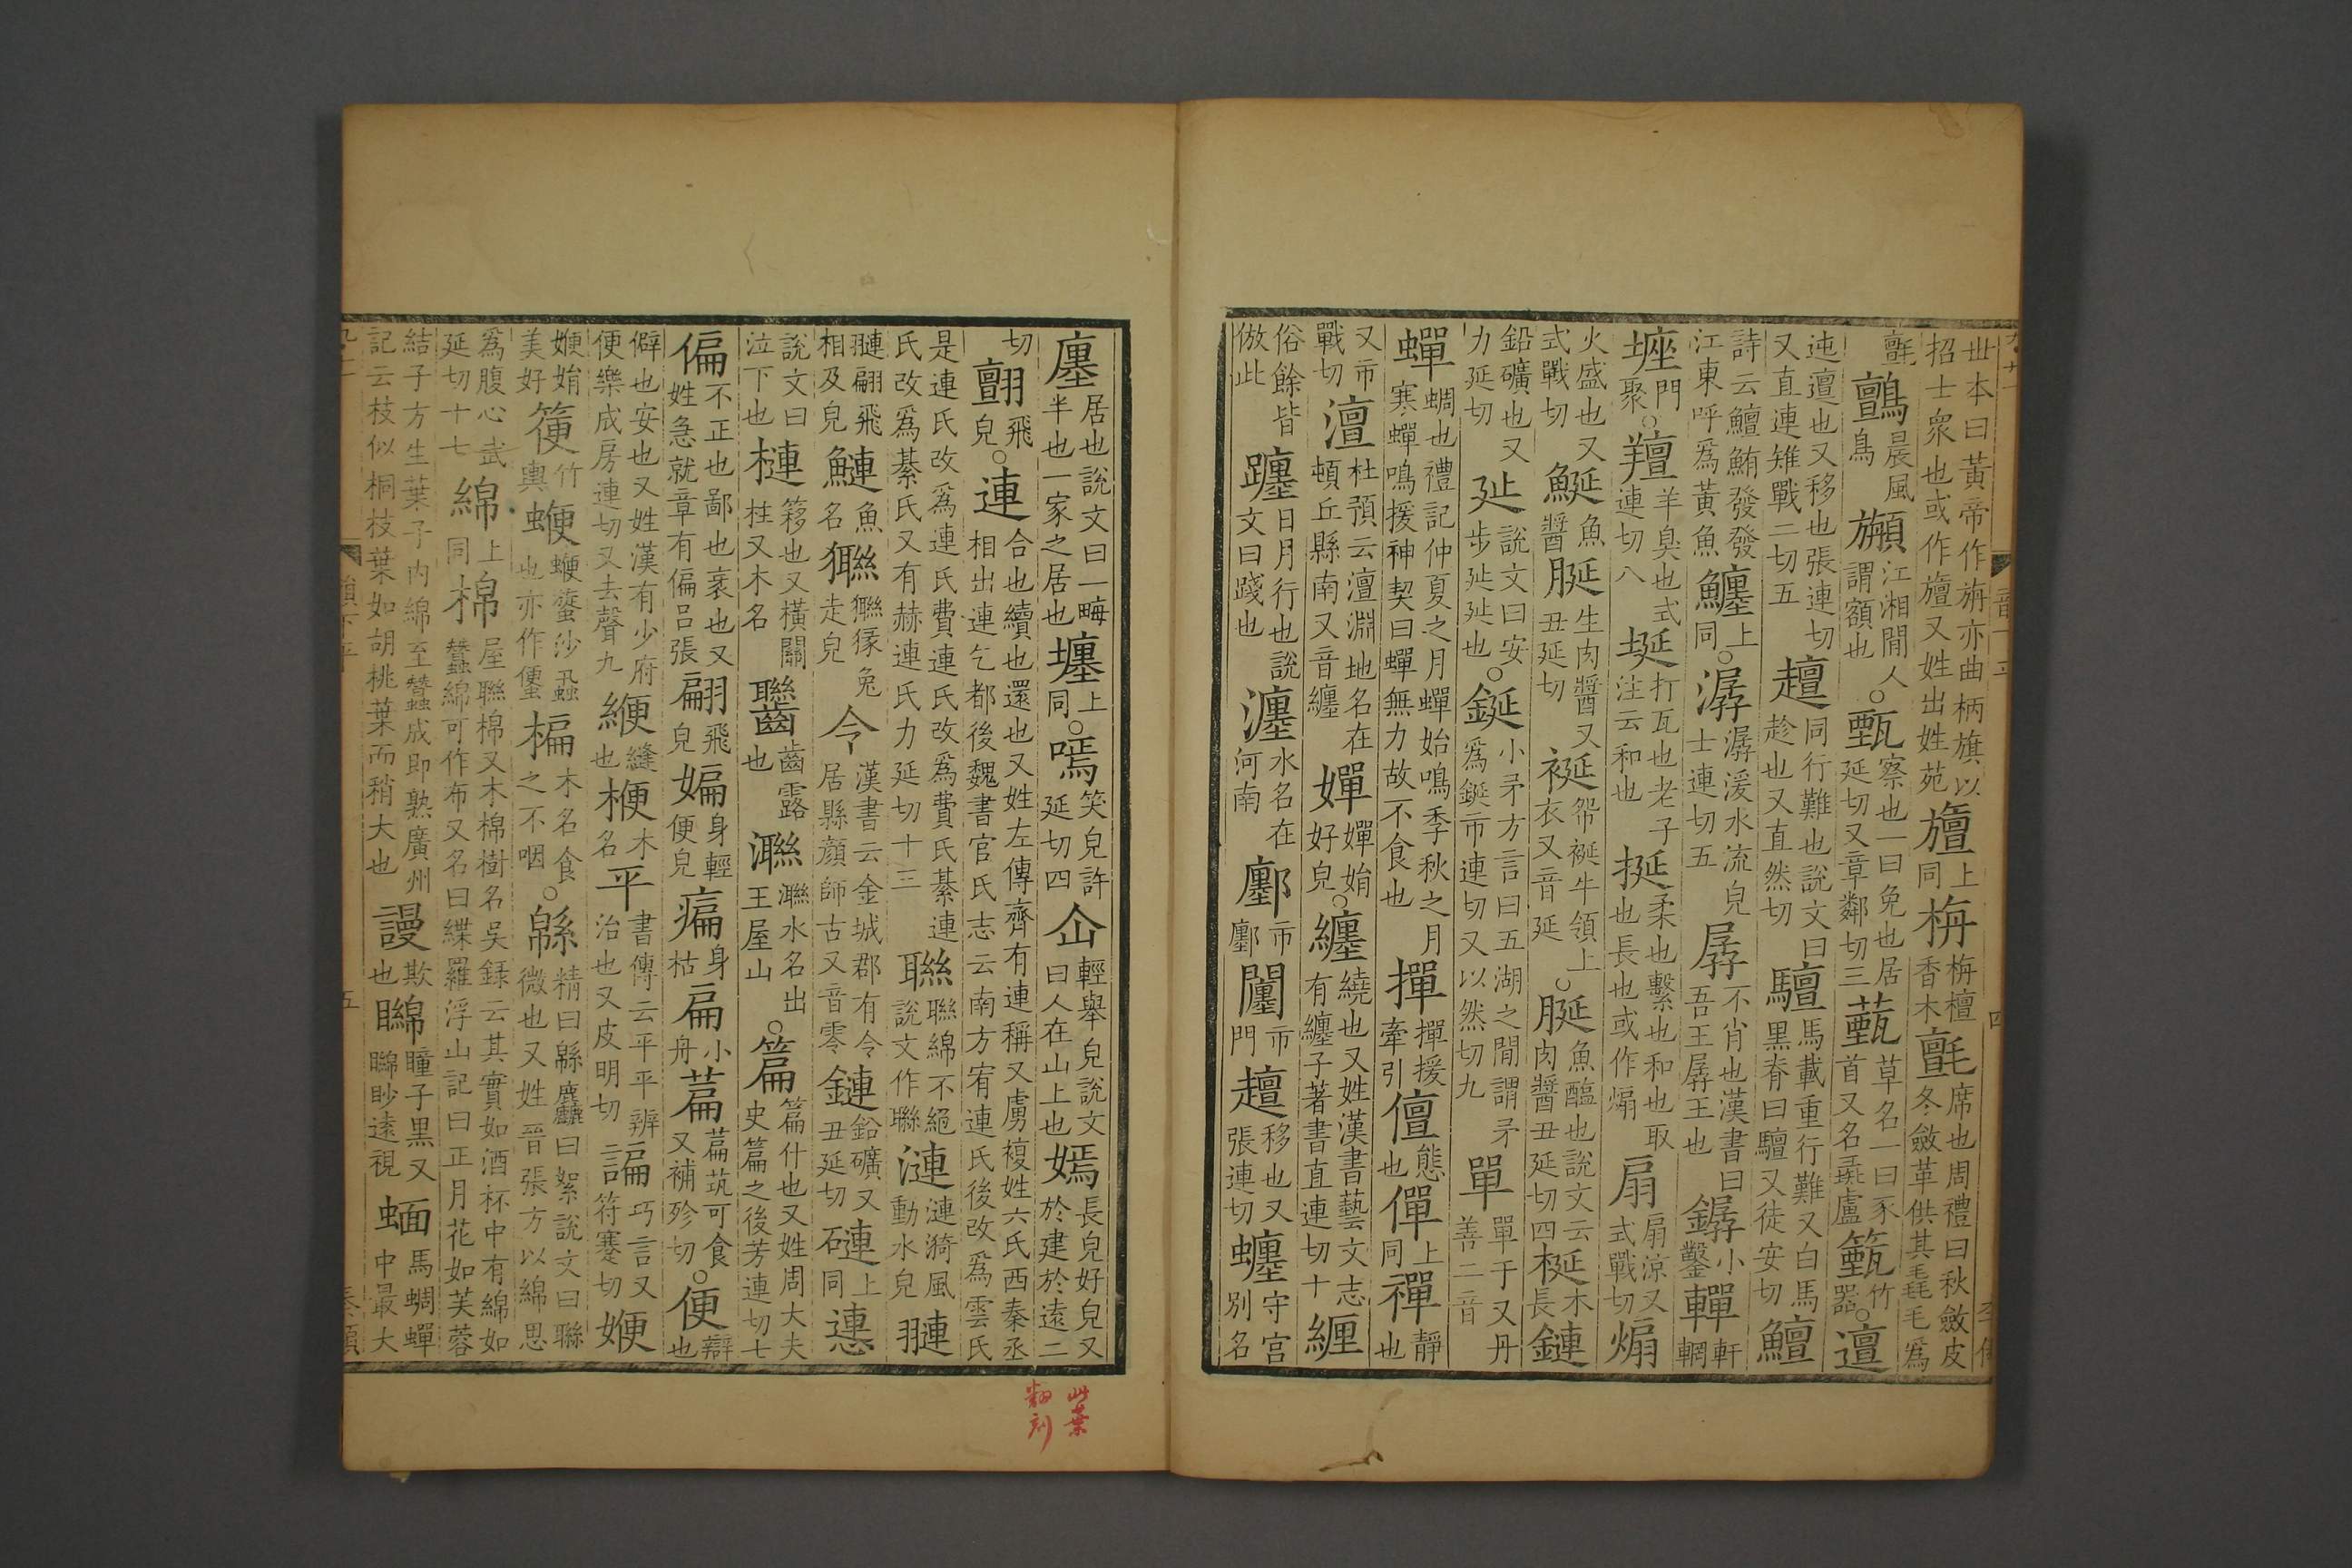 丗本曰黃帝作旃亦曲柄旗以招士衆也或作旜又姓出姓苑旜上同栴栴檀香木氈席也周禮曰秋斂皮冬斂革供其毳毛爲
氈鸇晨風鳥𩕊江湘間人謂額也○甄察也一曰免也居延切又章鄰切三薽草名一曰豕首又名彘盧籈竹器○邅
迍邅也又移也張連切又直連雉戰二切五趲同行難也說文曰趁也又直然切驙馬載重行難又白馬黑脊曰驙又徒安切鱣
詩云鱣鮪發發江東呼爲黃魚䲴上同○潺潺湲水流皃士連切五孱不肖也漢書曰吾王孱王也鏟小鑿轏軒輞
㙻門聚○羶羊臭也式連切八埏打瓦也老子注云和也挻柔也繫也和也取也長也或作煽扇扇涼又式戰切煽
火盛也又式戰切鯅魚醬脠生肉醬又丑延切裧衣又音延○脠魚醢也說文云肉醬丑延切四梴木長鏈
鉛礦也又力延切延說文曰安步延延也○鋋小矛方言曰五湖之間謂矛爲鋋市連切又以然切九單單于又丹善二音
蟬蜩也禮記仲夏之月蟬始鳴季秋之月寒蟬鳴援神契曰蟬無力故不食也撣撣援牽引儃態也僤上同禪靜也
又市戰切澶杜預云澶淵地名在頓丘縣南又音纏嬋嬋娟好皃○纏繞也又姓漢書藝文志有纏子著書直連切十緾
俗餘皆倣此躔日月行也說文曰踐也瀍水名在河南鄽市鄽闤市門邅移也又張連切䗺守宫別名
廛居也說文曰一畝半也一家之居也㙻上同○嘕笑皃許延切四仚輕舉皃說文曰人在山上也嫣長皃好皃又於建於遠二
切翾飛皃○連合也續也還也又姓左傳齊有連稱又虜複姓六氏西秦丞相出連乞都後魏書官氏志云南方宥連氏後改爲雲氏
是連氏改爲連氏費連氏改爲費氏綦連氏改爲綦氏又有赫連氏力延切十三聯聯綿不絕說文作聯漣漣漪風動水皃翴
翴翩飛相及皃鰱魚名獙獙猭兔走皃令漢書云金城郡有令居縣顔師古又音零鏈鉛礦又丑延切䃛上同慩
說文曰泣下也槤簃也又橫關柱又木名齒露也水名出王屋山○篇篇什也又姓周大夫史篇之後芳連切七
偏不正也鄙也衺也又姓急就章有偏呂張翩飛皃媥身輕便皃㾫身枯扁小舟萹萹茿可食又補殄切○便辯也
僻也安也又姓漢有少府便樂成房連切又去聲九緶縫也楩木名平書傳云平平辨治也又皮明切諞巧言又符蹇切㛹
㛹娟美好箯竹輿蝙也亦作螷楄木名食之不咽○緜精曰緜麤曰絮說文曰聯微也又姓晉張方以綿思
爲腹心武延切十七綿上同棉屋聯棉又木棉樹名吳錄云其實如酒杯中有綿如蠶綿可作布又名曰緤羅浮山記曰正月花如芙蓉
結子方生葉子内綿至蠶成即熟廣州記云枝似桐枝葉如胡桃葉而稍大也謾欺也矊瞳子黑又矊眇遠視䗃馬蜩蟬中最大
五
此葉
翻刻